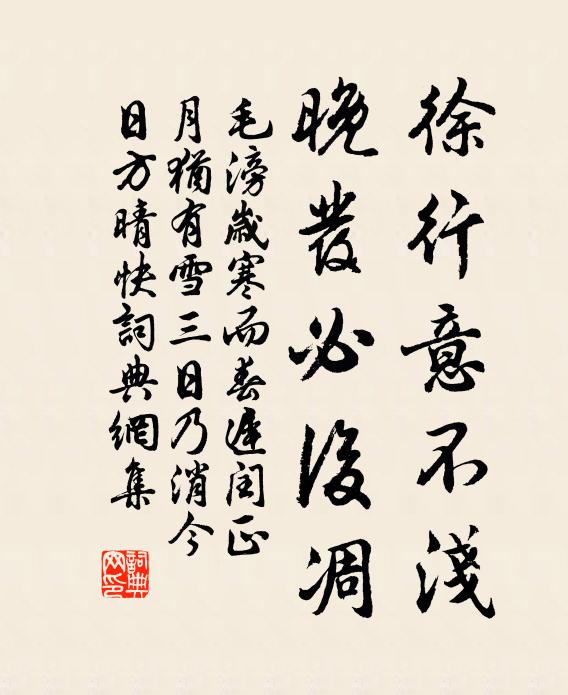 徐行意不淺
晚發必後凋
毛滂歲寒而春遲閏正
月猶有雪三日乃消今
日方晴快詞典網集
詞典
网印